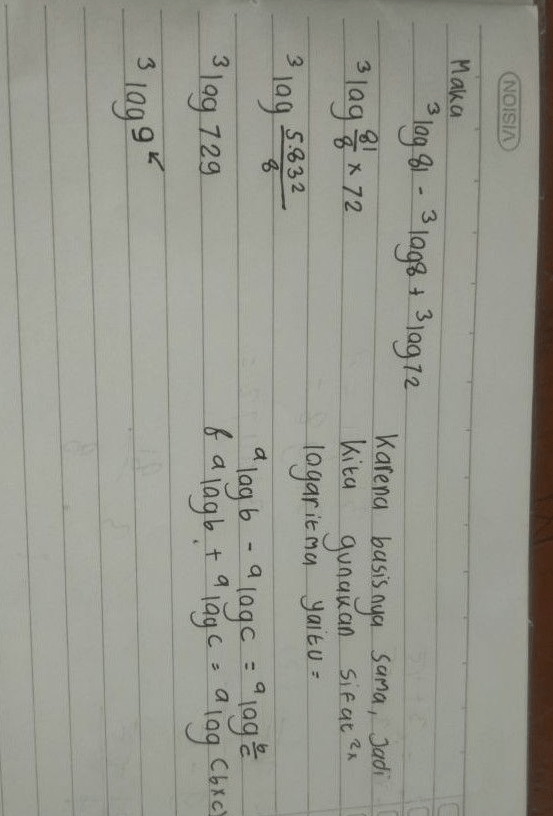 VISION
Maka
³log 81 - ³log 8 + ³log 72
³log 81/8 × 72
³log 5.832/8
³log 729
³log 9
Karena basisnya sama, jadi
kita gunakan sifat²x
logaritma yaitu =
ᵃlog b - ᵃlog c = ᵃlog b/c
& ᵃlog b + ᵃlog c = ᵃlog (b×c)